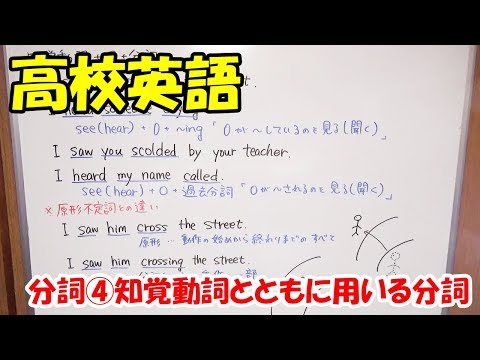 高校英語
see(hear) + O + ~ing 「Oが~しているのを見る(聞く)」
I saw you scolded by your teacher.
I heard my name called.
see(hear) + O + 過去分詞 「Oが~されるのを見る(聞く)」
※原形不定詞との違い
I saw him cross the street.
原形 … 動作の始めから終わりまでのすべて
I saw him crossing the street.
分詞④知覚動詞とともに用いる分詞